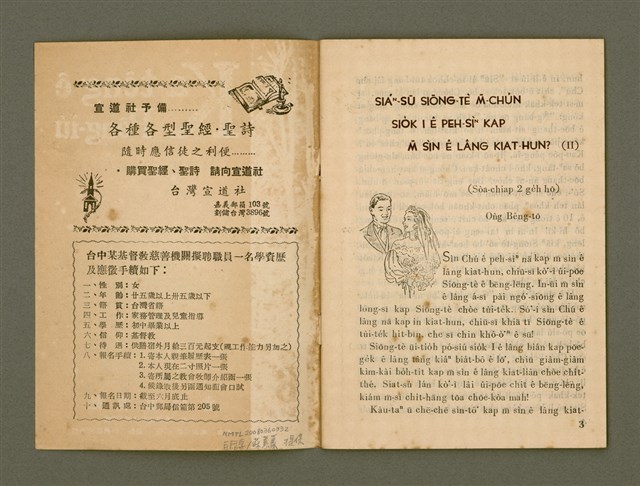 宣道社予備………
各種各型聖經·聖詩
隨時應信徒之利便………
·購買聖經、聖詩 請向宣道社
台灣宣道社
嘉義郵箱103號
劃儲台灣3896號
台中某基督教慈善機關擬聘職員一名學資歷
及應徵手續如下：
一、性 別：女
二、年 齡：廿五歲以上卅五歲以下
三、籍 貫：台灣省籍
四、工 作：家務管理及兒童指導
五、學 歷：初中畢業以上
六、信 仰：基督教
七、待 遇：供膳宿外月給三百元起支(視工作能力另加之)
八、報名手續：1. 寄本人親筆履歷表一張
2. 本人現在二寸照片一張
3. 寄所屬之教會牧師介紹函一張
4. 候錄取後另函通知面會口試
九、報名日期：截至六月底止
十、通訊處：台中郵局信箱第205號
SIÁⁿ-SŪ SIŌNG-TÈ M̄-CHÚN
SIÓK I Ê PEH-SÌⁿ KAP
M̄ SÌN Ê LÂNG KIAT-HUN? (II)
(Sòa-chiap 2 ge̍h hō)
Ông Bêng-tō
Sìn Chú ê peh-sìⁿ nā kap m̄ sìn ê
lâng kiat-hun, chiū-sī kò͘-ì ûi-pōe
Siōng-tè ê bēng-lēng. In-ūi m̄ sìn
ê lâng á-sī pài ngó͘-siōng ê lâng
lóng-sī kap Siōng-tè chòe tùi-te̍k. Só͘-í sìn Chú ê
lâng nā kap in kiat-hun, chiū-sī khiā tī Siōng-tè ê
tùi-te̍k hit-bīn, che sī chin khó-ò͘ⁿ ê sū!
Siōng-tè ūi-tio̍h pó-sū sio̍k I ê lâng bián kap pōe-
ge̍k ê lâng tâng kiâⁿ bia̍t-bô ê lō͘, chiū giâm-giâm
kìm-kài bô-thit kap m̄ sìn ê lâng kiat-liân chòe chi̍t-
thè. Siat-sú lán kò͘-ì lâi ûi-pōe chit ê bēng-lēng,
kiám m̄-sī chhóng-tōa chōe-koà mah!
Kàu-taⁿ ū chē-chē sìn-tô͘ kap m̄ sìn ê lâng kiat-
3